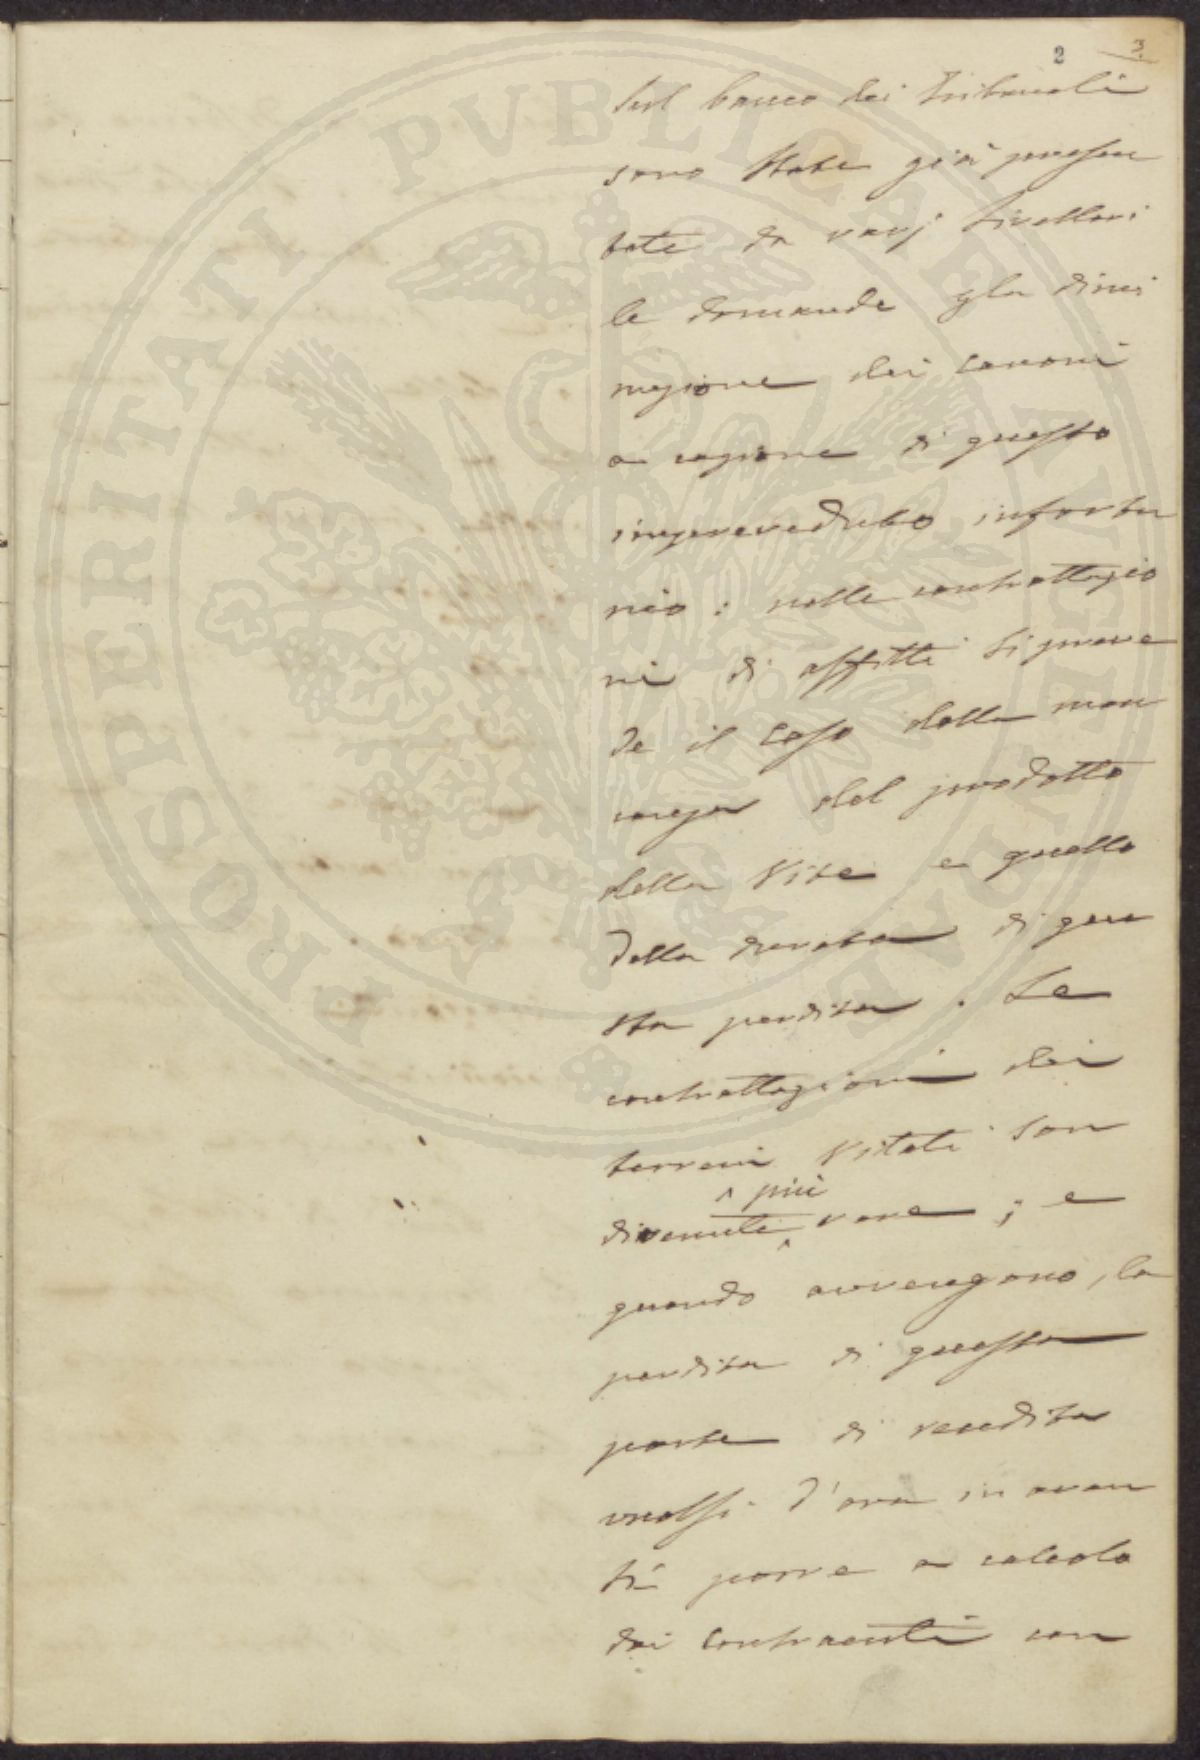 2 3.
Sul banco dei Tribunali
sono state già presen
tate da varj Livellari
le domande p la dimi
nuzione dei canoni
a cagione di questo
impreveduto infortu
nio: nelle contrattazio
ni di affitti si preve
de il caso della man
canza del prodotto
della Vite e quello
della durata di que
sta perdita. Le
contrattazioni dei
terreni vitati son
divenute più rare; e
quando avvengono, la
perdita di questa
parte di rendita
vuolsi d'ora in avan
ti porre a calcolo
dai contraenti con
PROSPERITATI PVBLICAE AVGENDAE